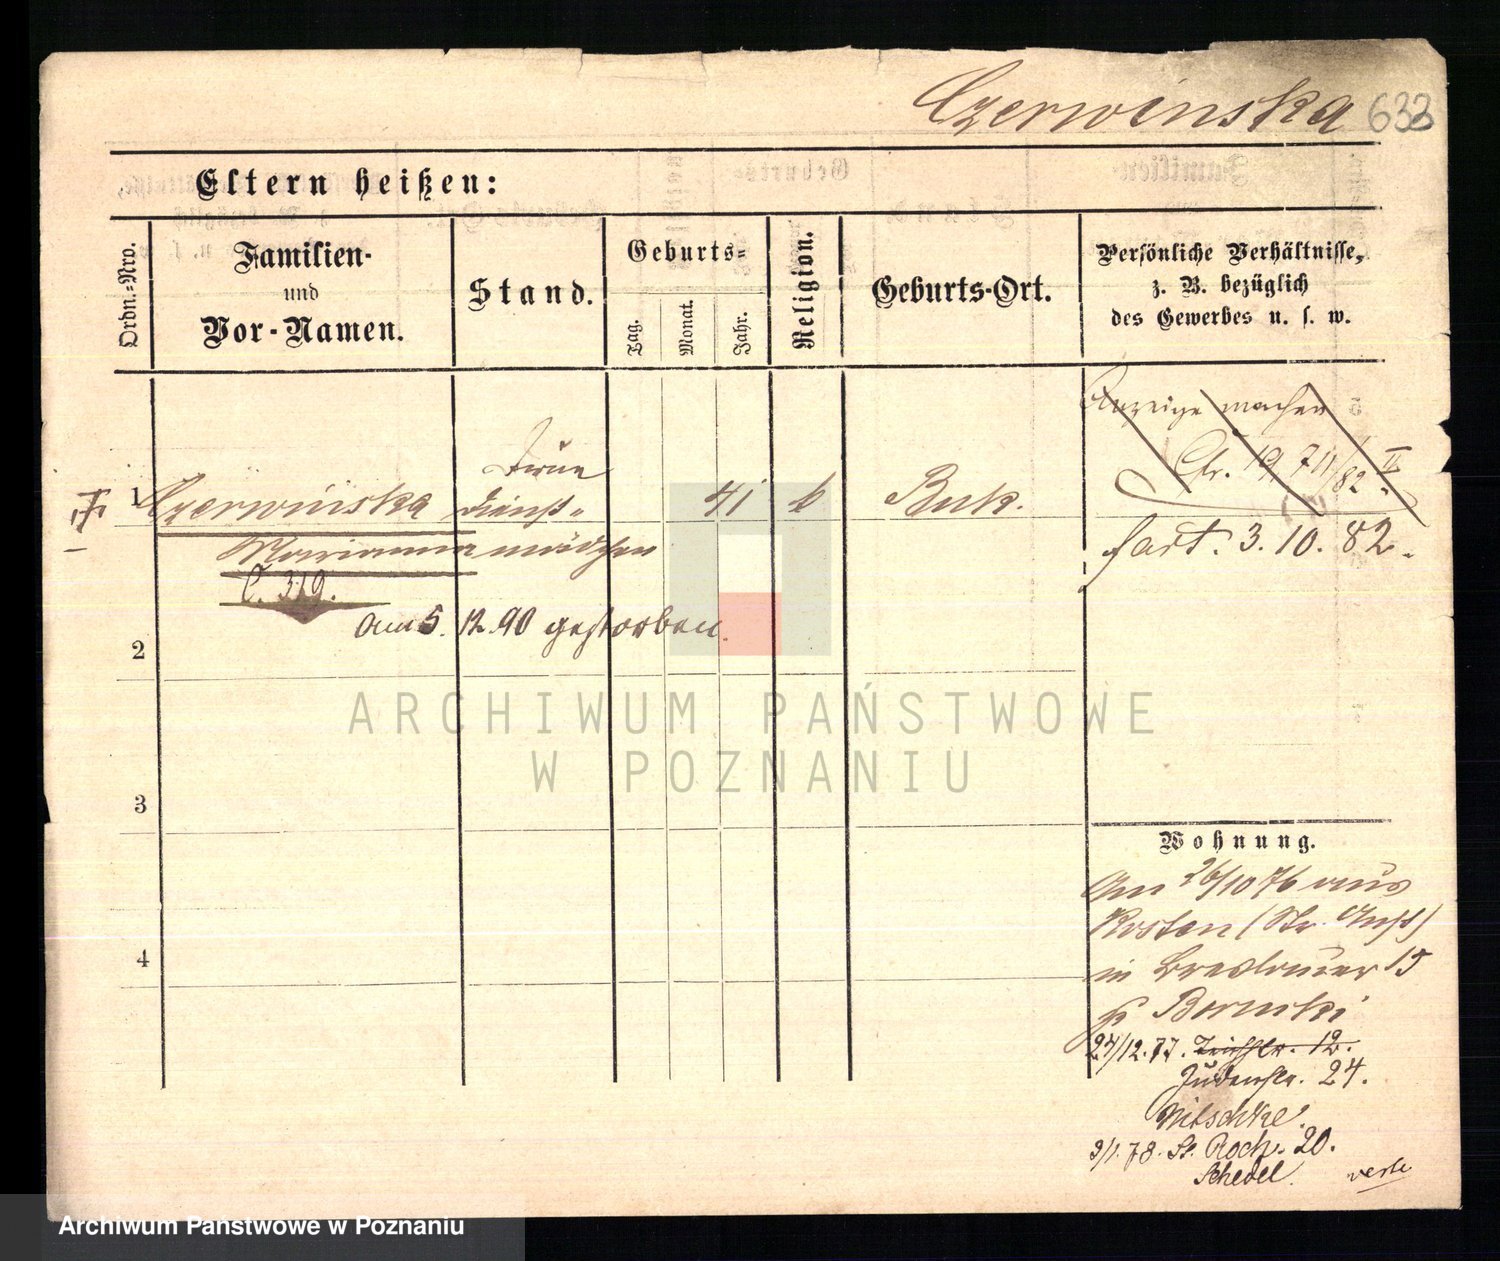 Czerwinska 633
Eltern heißen:
Ordn.-Nro.
Familien-
und
Vor-Namen.
Stand.
Geburts-
Tag.
Monat.
Jahr.
Religion.
Geburts-Ort.
Persönliche Verhältnisse,
z. B. bezüglich
des Gewerbes u. s. w.
Anzeige machen
Str. 19 711/82 II
fort. 3. 10. 82.
1
Czerwinska
Marianna
C. 319.
dienst-
mädchen
41
k
Buk.
am 5. 12. 90 gestorben.
2
3
4
Wohnung.
Am 26/10 76 aus
Kosten (Str. Anst)
in Breslauer 15
24/12. 77. 12.
Judenstr. 24.
Nitschke.
3/1. 78. St. Roch. 20.
Schedel.
verte
ARCHIWUM PAŃSTWOWE
W POZNANIU
Archiwum Państwowe w Poznaniu